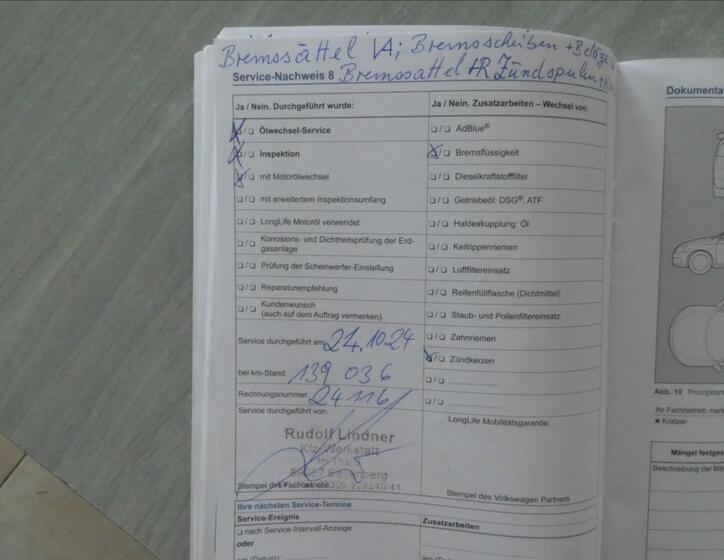 Bremssättel VA; Bremsscheiben + Beläge
Service-Nachweis 8 Bremssattel HR Zündspulen +
Dokumenta
Ja / Nein. Durchgeführt wurde:
Ja / Nein. Zusatzarbeiten – Wechsel von:
❑/❑ Ölwechsel-Service
❑/❑ AdBlue®
❑/❑ Inspektion
❑/❑ Bremsflüssigkeit
❑/❑ mit Motorölwechsel
❑/❑ Dieselkraftstofffilter
❑/❑ mit erweitertem Inspektionsumfang
❑/❑ Getriebeöl: DSG®, ATF
❑/❑ LongLife Motoröl verwendet
❑/❑ Haldexkupplung: Öl
❑/❑ Korrosions- und Dichtheitsprüfung der Erd-
gasanlage
❑/❑ Keilrippenriemen
❑/❑ Prüfung der Scheinwerfer-Einstellung
❑/❑ Luftfiltereinsatz
❑/❑ Reparaturempfehlung
❑/❑ Reifenfüllflasche (Dichtmittel)
❑/❑ Kundenwunsch
(auch auf dem Auftrag vermerken)
❑/❑ Staub- und Pollenfiltereinsatz
Service durchgeführt am: 24.10.24
❑/❑ Zahnriemen
❑/❑ Zündkerzen
bei km-Stand: 139 036
❑/❑
Rechnungsnummer: 24116
❑/❑
Service durchgeführt von:
LongLife Mobilitätsgarantie:
Rudolf Lindner
Kfz-Werkstatt
Im Thal
Stempel des Fachbetriebs
Stempel des Volkswagen Partners
Ihre nächsten Service-Termine
Service-Ereignis
Zusatzarbeiten
❑ nach Service-Intervall-Anzeige
oder
am (Datum):
Abb. 10 Prinzipdar
Ihr Fachbetrieb mar
✖ Kratzer
Mängel festges
Beschreibung der Mä